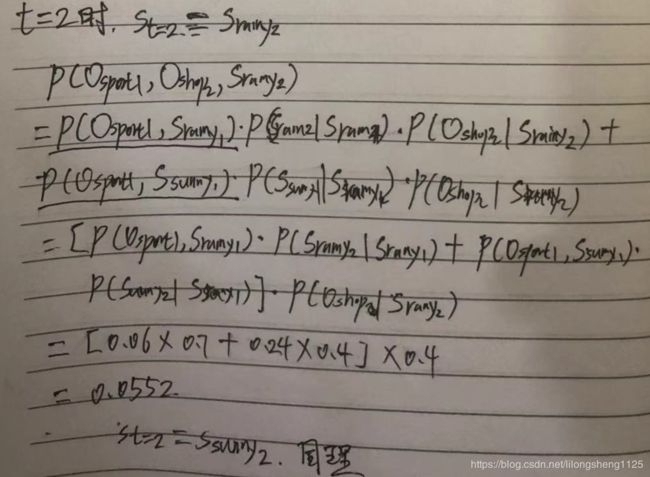 t=2时. St=2 = Srainy2
P(Osport1, Oshop2, Srainy2)
= P(Osport1, Srainy1)·P(Srainy2|Srainy1)·P(Oshop2|Srainy2) +
P(Osport1, Ssunny1)· P( | )·P(Oshop2| )
= [P(Osport1, Srainy1)· P(Srainy2|Srainy1) + P(Osport1, Ssunny1)·
P( | )]· P(Oshop2|Srainy2)
= [0.06 × 0.7 + 0.24 × 0.4] × 0.4
= 0.0552.
St=2 = Ssunny2. 同理
https://blog.csdn.net/lilongsheng1125